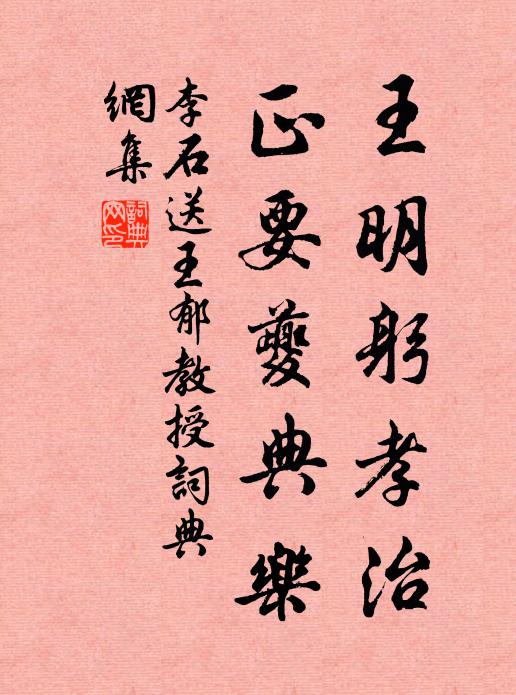 王明躬孝治
正要夔典樂
李石送王郁教授詞典
網集
詞典網印